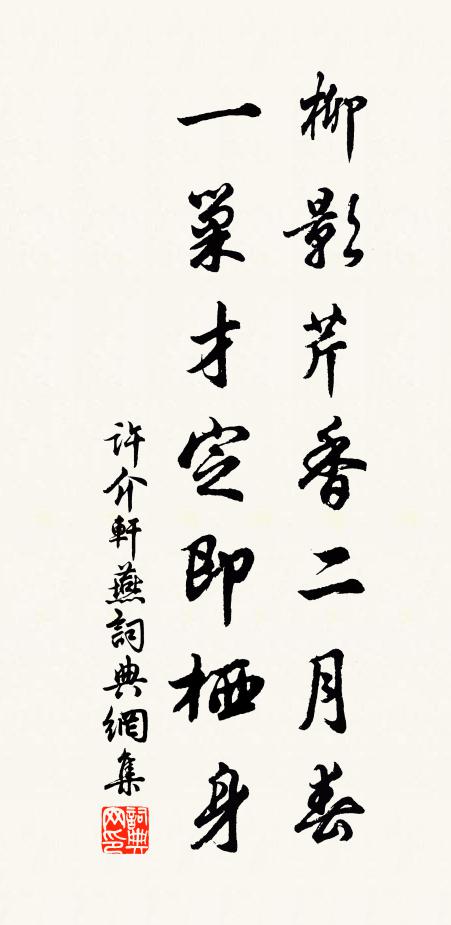 柳影芹香二月春
一巢才定即栖身
許介軒燕詞典網集
詞典網印